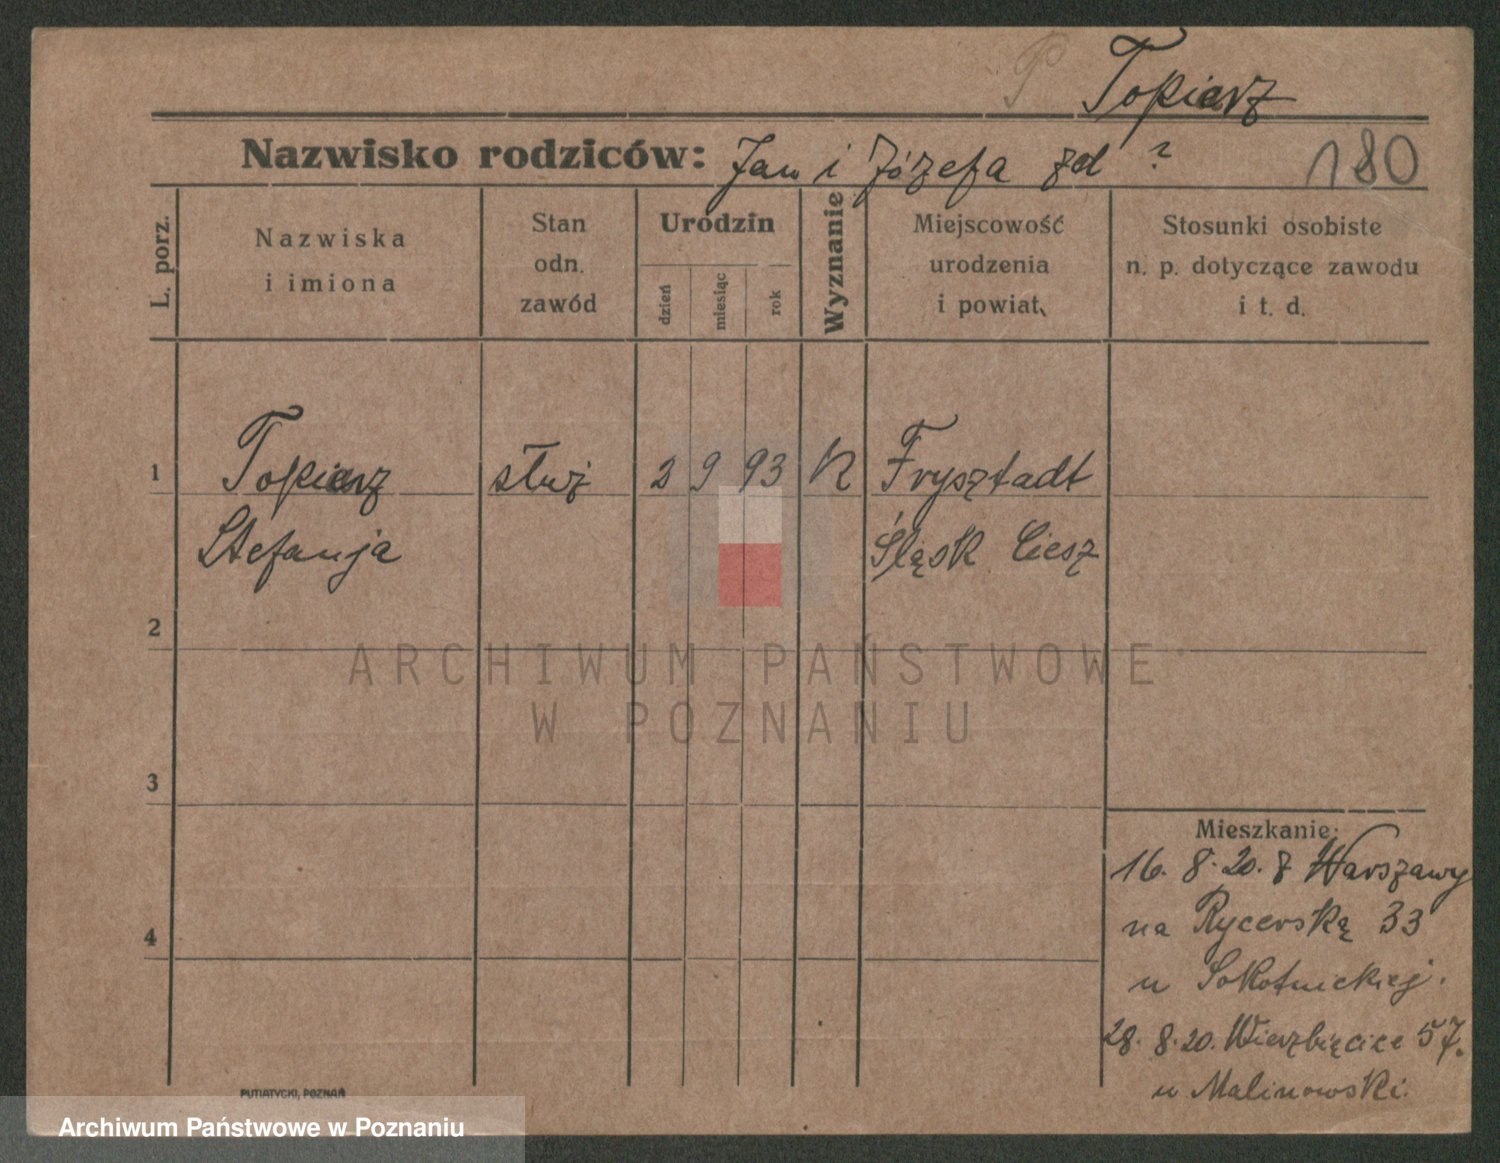 P Topierz
Nazwisko rodziców: Jan i Józefa zd ?
180
L. porz.
Nazwiska
i imiona
Stan
odn.
zawód
Urodzin
dzień
miesiąc
rok
Wyznanie
Miejscowość
urodzenia
i powiat
Stosunki osobiste
n. p. dotyczące zawodu
i t. d.
1 Topierz służ 2 9 93 K Frysztadt
Stefanja Śląsk Ciesz
2
ARCHIWUM PAŃSTWOWE
W POZNANIU
3
4
Mieszkanie:
16. 8. 20. z Warszawy
na Rycerską 33
u Sokolnickiej.
28. 8. 20. Wierzbięcice 57.
u Malinowski.
PUTIATYCKI, POZNAŃ
Archiwum Państwowe w Poznaniu